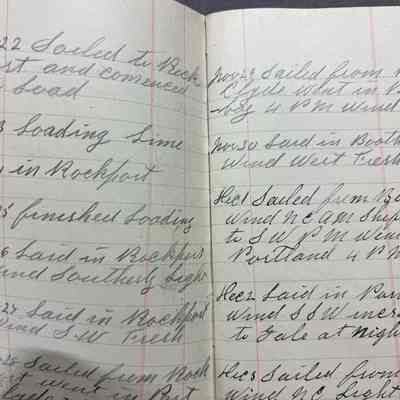 22 Sailed to Rock
and comenced
Load
Loading Lime
in Rockport
finished Loading
Laid in Rockport
Wind Southerly Light
27 Laid in Rockport
Wind S.W Fresh
Sailed from Rock
went in Port
Nov 29 Sailed from
Clyde went in
4 P M Wind
Nov 30 Laid in Booth
Wind West Fresh
Dec 1 Sailed from
Wind N E A M Ship
to S W P M Wind
Portland 4 P M
Dec 2 Laid in Por
Wind S S W incre
to Gale at night
Dec 3 Sailed from
Wind N E Light